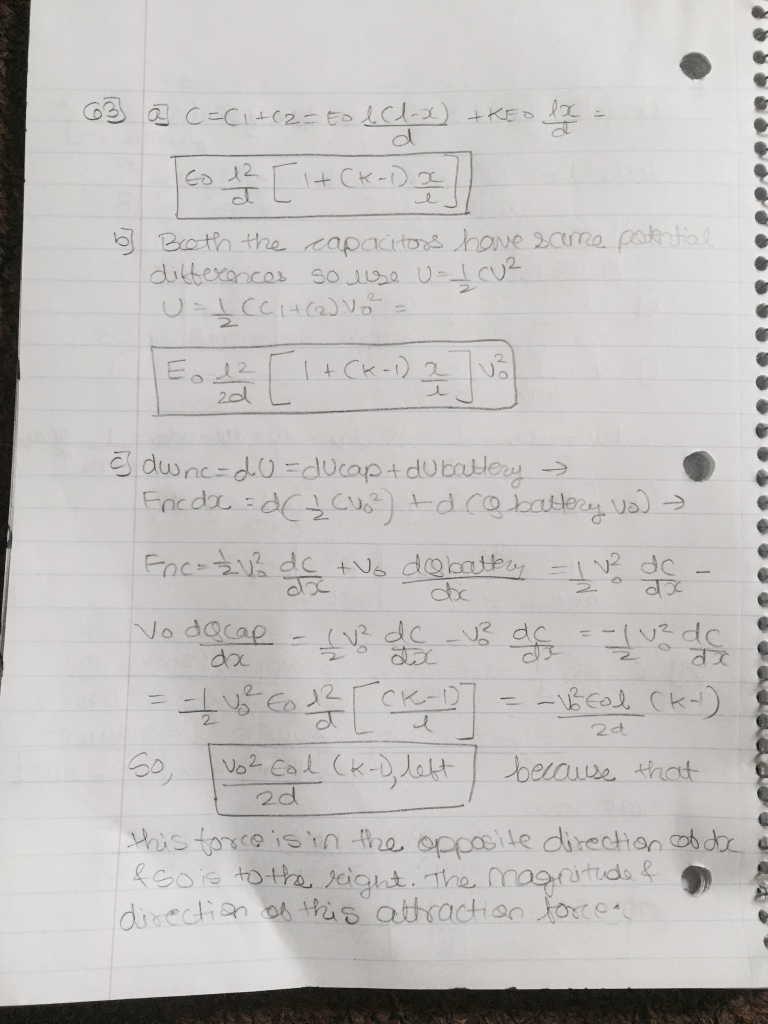 Q3] a] C = C1 + C2 = E0 l(l-x)/d + KE0 lx/d =
E0 l²/d [1 + (K-1) x/l]
b] Both the capacitors have same potential
differences so use U = 1/2 CV²
U = 1/2 (C1 + C2) V0² =
E0 l²/2d [1 + (K-1) x/l] V0²
c] dWnc = dU = dUcap + dUbattery →
Fnc dx = d(1/2 CV0²) + d(Q battery V0) →
Fnc = 1/2 V0² dC/dx + V0 dQbattery/dx = 1/2 V0² dC/dx -
V0 dQcap/dx = 1/2 V0² dC/dx - V0² dC/dx = -1/2 V0² dC/dx
= -1/2 V0² E0 l²/d [(K-1)/l] = -V0² E0 l/2d (K-1)
So, V0² E0 l/2d (K-1), left because that
this force is in the opposite direction of dx
& so is to the right. The magnitude &
direction of this attraction force.